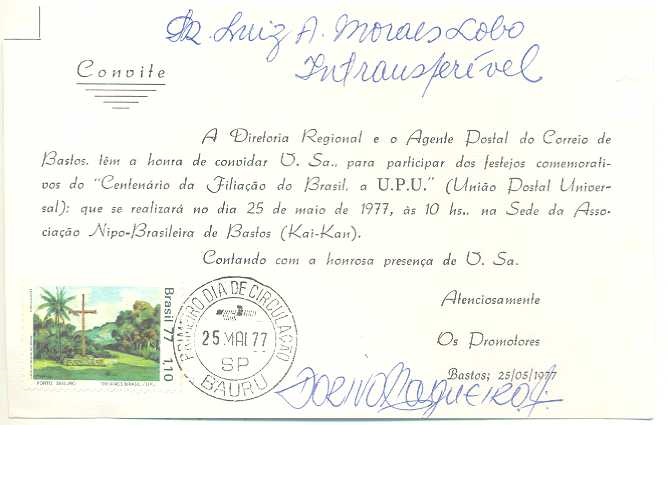 Sr. Luiz A. Moraes Lobo
Intransferível
Convite
A Diretoria Regional e o Agente Postal do Correio de
Bastos, têm a honra de convidar V. Sa., para participar dos festejos comemorati-
vos do "Centenário da Filiação do Brasil, a U.P.U." (União Postal Univer-
sal): que se realizará no dia 25 de maio de 1977, às 10 hs., na Sede da Asso-
ciação Nipo-Brasileira de Bastos (Kai-Kan).
Contando com a honrosa presença de V. Sa.
Atenciosamente
Os Promotores
Bastos; 25/05/1977
Brasil 77 1,10
PORTO SEGURO
PRIMEIRO DIA DE CIRCULAÇÃO
25 MAI 77
SP
BAURU